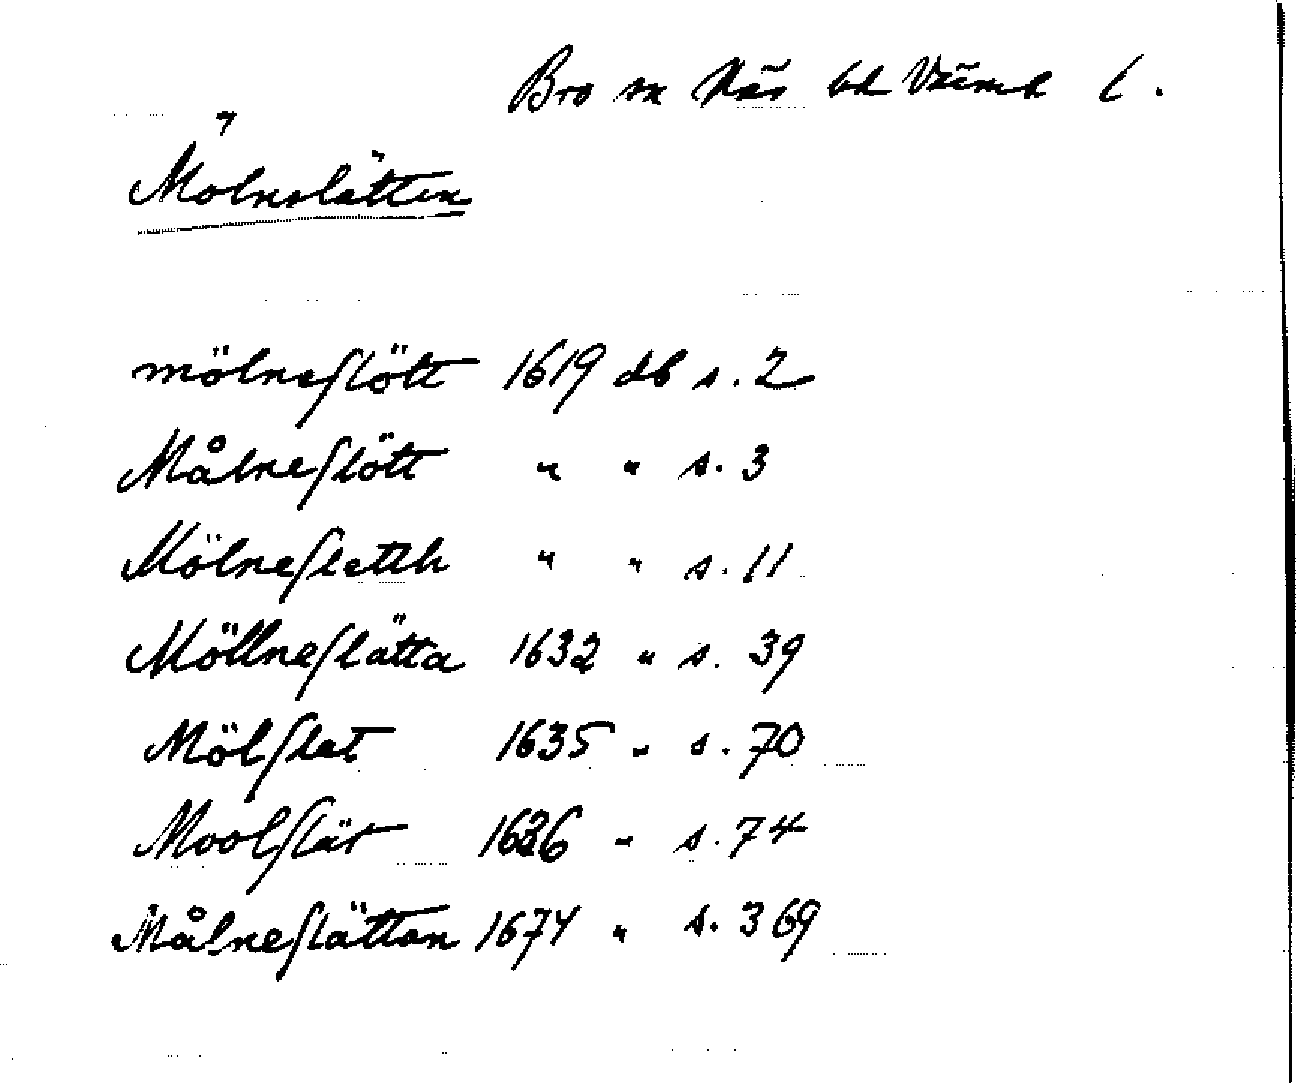 Bro sn Näs hd Värml l.
Mölnslätten
mölneslött 1619 db s. 2
Målneslött " " s. 3
Mölnesletth " " s. 11
Möllneslätta 1632 " s. 39
Mölslet 1635 " s. 70
Moolslät 1636 " s. 74
Målneslättan 1674 " s. 369